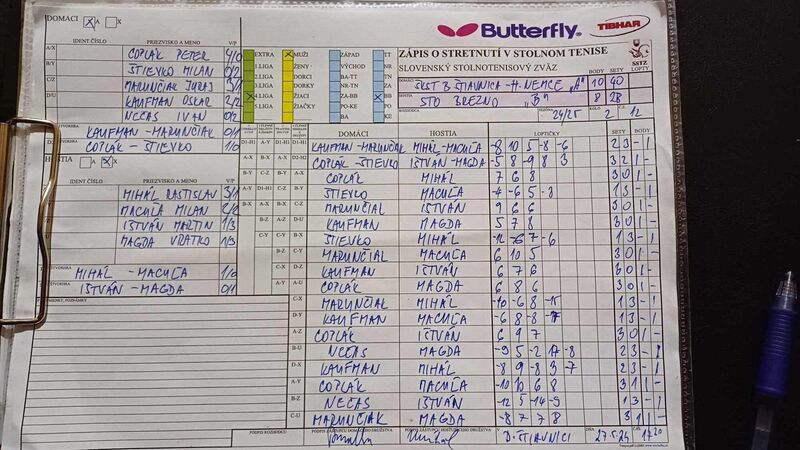 DOMÁCI A X
Butterfly
TIBHAR
IDENT.ČÍSLO PRIEZVISKO A MENO V/P
ZÁPIS O STRETNUTÍ V STOLNOM TENISE
SLOVENSKÝ STOLNOTENISOVÝ ZVÄZ
SSTZ
A/X COPLÁK PETER 4/0
B/Y ŠTIEVKO MILAN 0/2
MARUNČIAK JURAJ
D/U KAUFMAN OSKAR 2/2
NEČAS IVAN 0/2
KAUFMAN - MARUNČIAK 0/1
COPLÁK - ŠTIEVKO 1/0
EXTRA MUŽI ZÁPAD TT
1.LIGA ŽENY VÝCHOD NR
2.LIGA DORCI BA-TT TN
3.LIGA DORKY NR-TN ZA
4.LIGA ŽIACI ZA-BB BB
5.LIGA ŽIAČKY PO-KE PO
BA KE
DOMÁCI SKST B. ŠTIAVNICA - H. NEMCE "A" BODY 10 SETY 40 LOPTY
HOSTIA STO BREZNO "B" 8 28
24/25 KOLO 2 Č. 12
HOSTIA A X
IDENT.ČÍSLO PRIEZVISKO A MENO V/P
MIHÁL RASTISLAV 3/1
MACUĽA MILAN 2/2
IŠTVÁN MARTIN 1/3
MAGDA VRATKO 1/3
MIHÁL - MACUĽA 1/0
IŠTVÁN - MAGDA 0/1
DOMÁCI HOSTIA LOPTIČKY SETY BODY
D1-H1 KAUFMAN-MARUNČIAK MIHÁL-MACUĽA -8 10 5 -8 -6 2 3 - 1
D2-H2 COPLÁK-ŠTIEVKO IŠTVÁN-MAGDA -5 8 -9 8 3 3 2 1 -
A-X COPLÁK MIHÁL 7 6 8 3 0 1 -
B-Y ŠTIEVKO MACUĽA -4 -6 5 -8 1 3 - 1
C-Z MARUNČIAK IŠTVÁN 9 6 6 3 0 1 -
D-U KAUFMAN MAGDA 5 7 8 3 0 1 -
B-X ŠTIEVKO MIHÁL -12 -6 7 -6 1 3 - 1
C-Y MARUNČIAK MACUĽA 6 10 5 3 0 1 -
D-Z KAUFMAN IŠTVÁN 6 7 6 3 0 1 -
A-U COPLÁK MAGDA 6 8 6 3 0 1 -
C-X MARUNČIAK MIHÁL -10 -6 8 -15 1 3 - 1
D-Y KAUFMAN MACUĽA -6 8 -8 -17 1 3 - 1
A-Z COPLÁK IŠTVÁN 6 9 7 3 0 1 -
B-U NEČAS MAGDA -9 5 -2 17 -8 2 3 - 1
D-X KAUFMAN MIHÁL -8 9 -8 3 -7 2 3 - 1
A-Y COPLÁK MACUĽA -10 10 6 8 3 1 1 -
B-Z NEČAS IŠTVÁN -12 5 -14 -9 1 3 - 1
C-U MARUNČIAK MAGDA -8 7 7 8 3 1 1 -
PODPIS ROZHODCU PODPIS ZÁSTUPCU DOMÁCEHO DRUŽSTVA PODPIS ZÁSTUPCU HOSŤUJÚCEHO DRUŽSTVA V B. ŠTIAVNICI DŇA ČAS 17.20